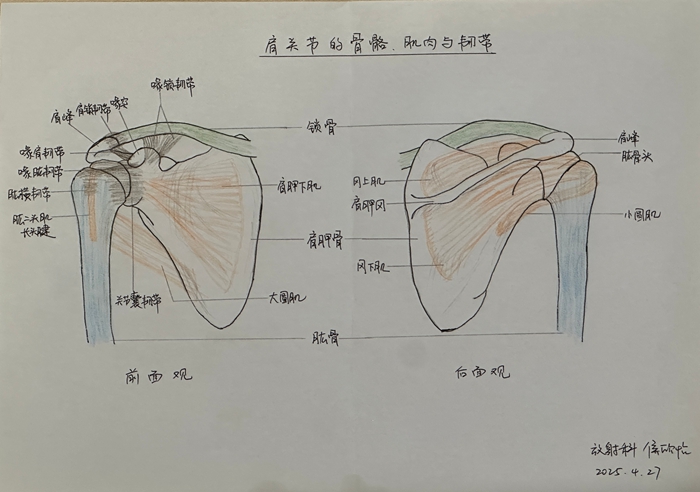 肩关节的骨骼、肌肉与韧带
喙锁韧带
肩锁韧带
喙突
肩峰
喙肩韧带
喙肱韧带
肱横韧带
肱二头肌
长头腱
关节囊韧带
大圆肌
肩胛下肌
锁骨
肩胛骨
肱骨
前面观
冈上肌
肩胛冈
冈下肌
肩峰
肱骨头
小圆肌
后面观
放射科
2025.4.27